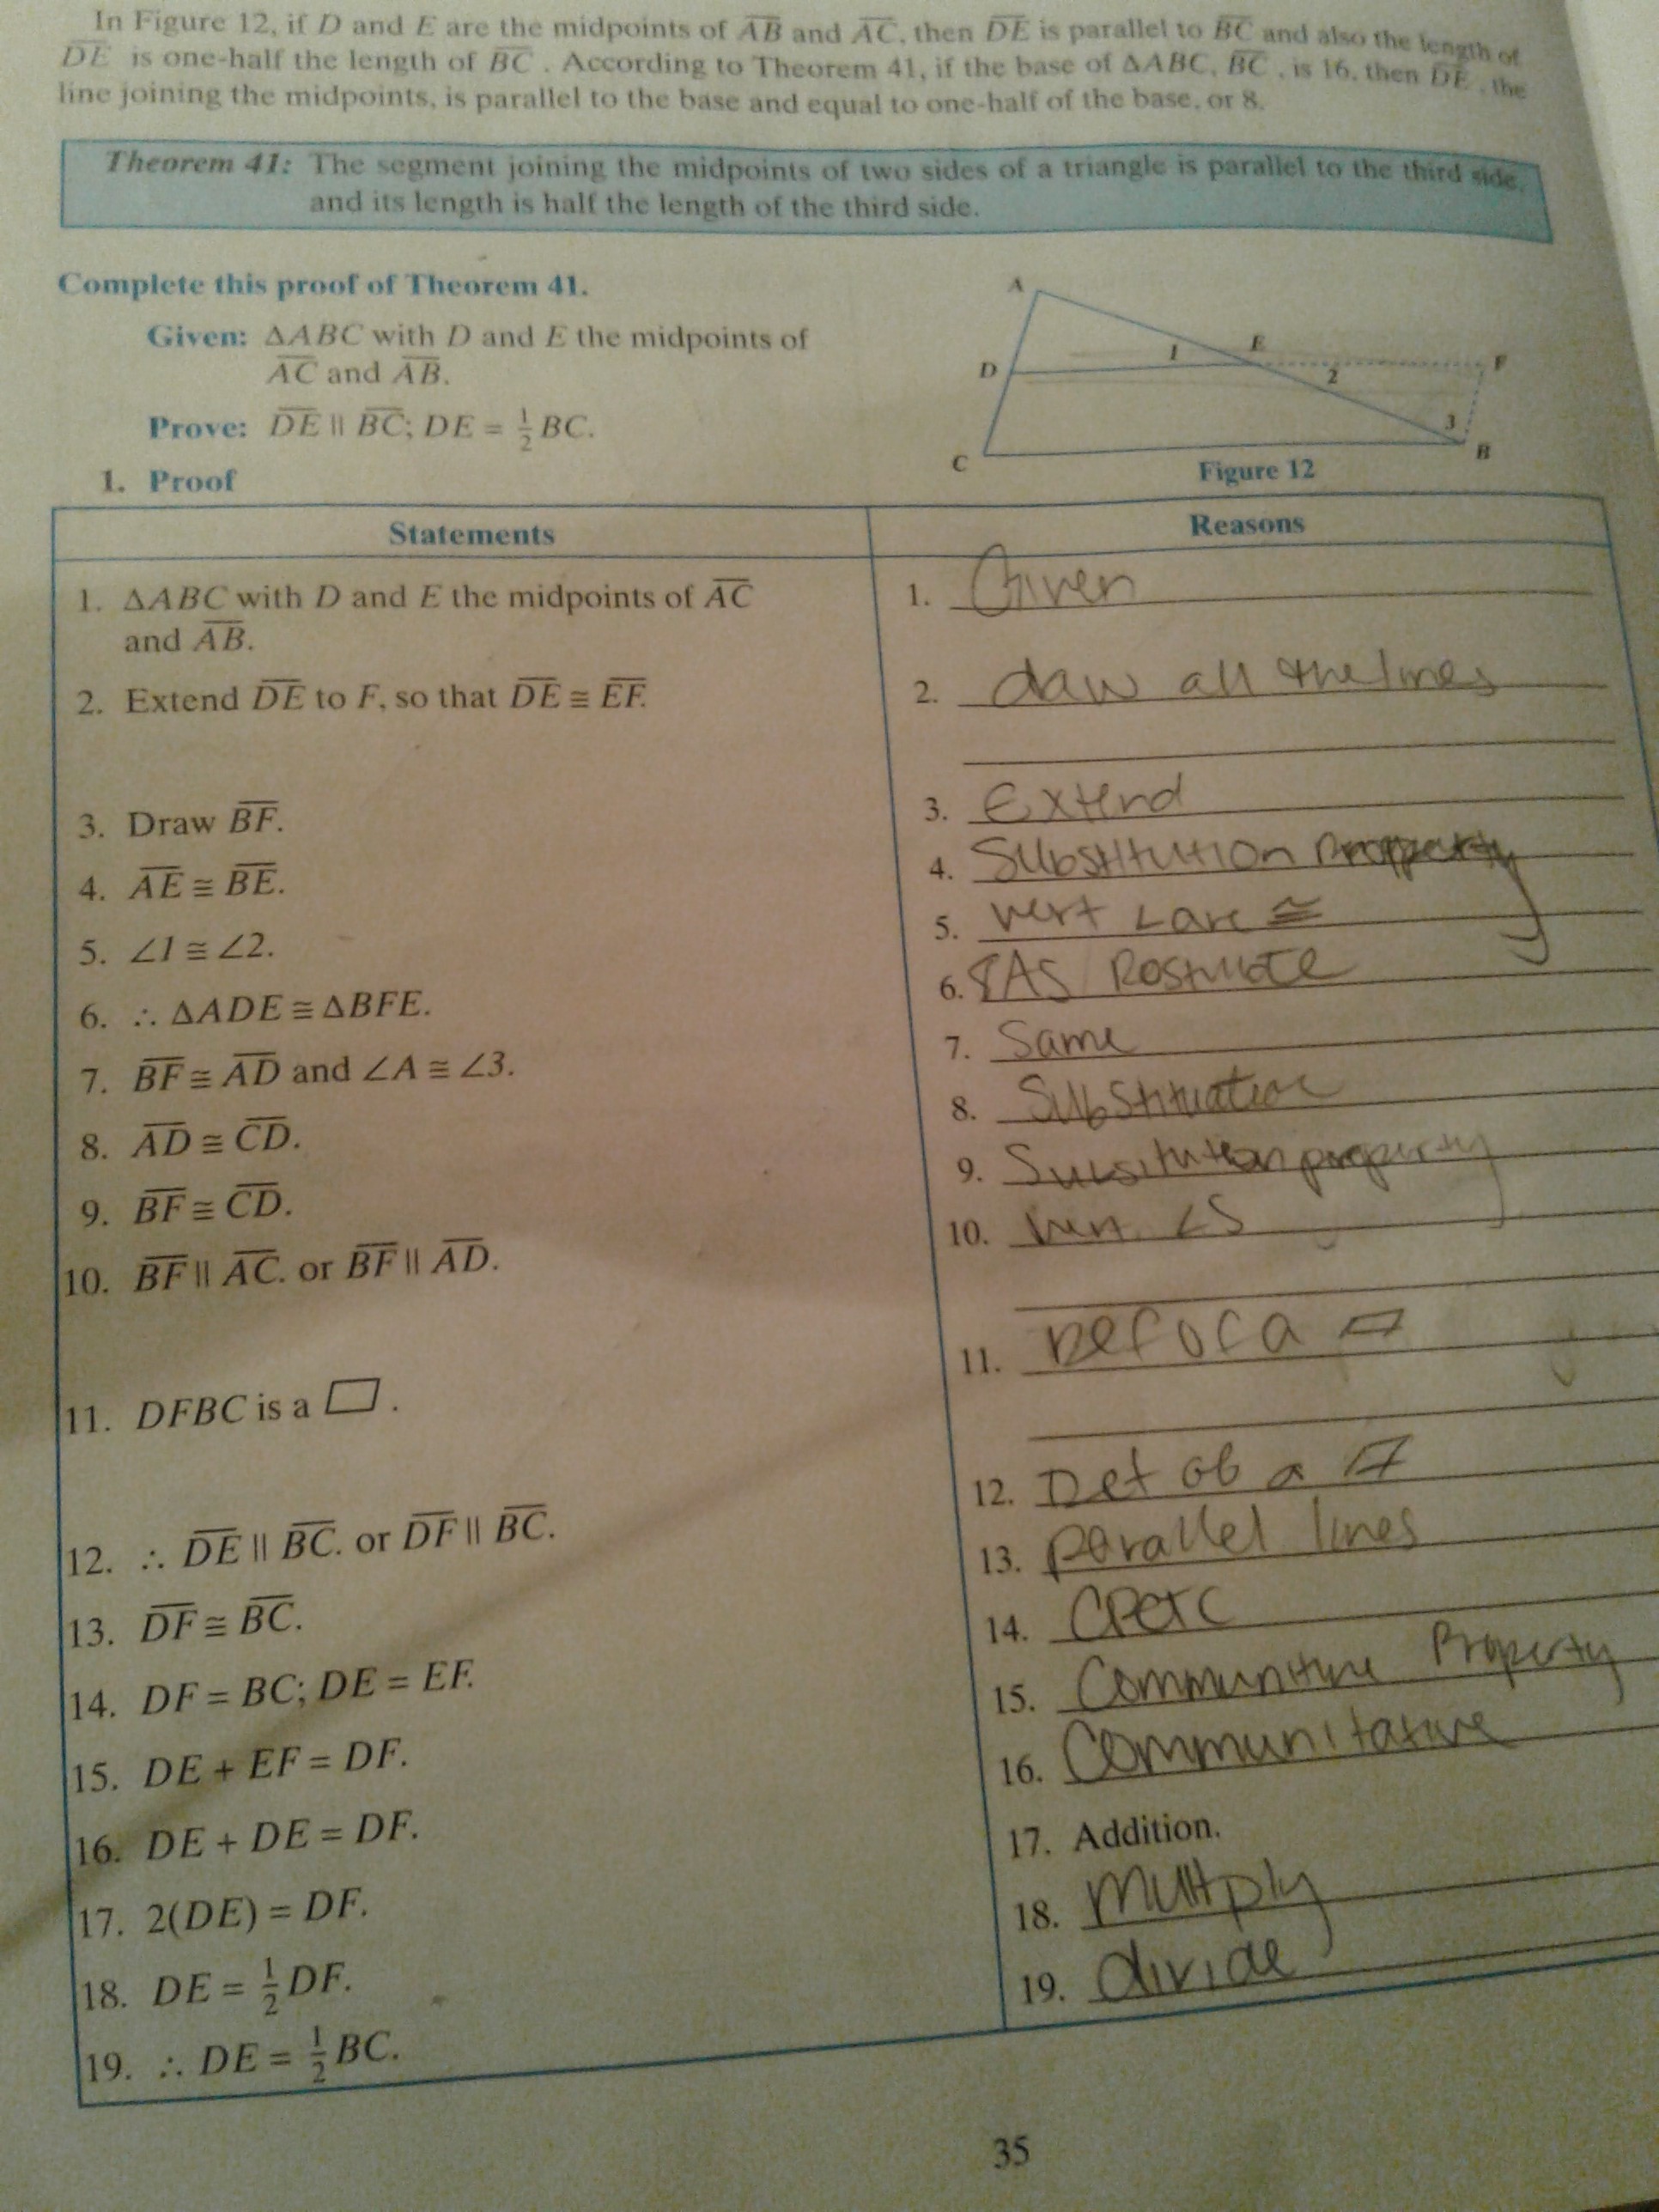 In Figure 12, if D and E are the midpoints of AB and AC, then DE is parallel to BC and also the length of
DE is one-half the length of BC. According to Theorem 41, if the base of ΔABC, BC, is 16, then DE, the
line joining the midpoints, is parallel to the base and equal to one-half of the base, or 8.
Theorem 41: The segment joining the midpoints of two sides of a triangle is parallel to the third side,
and its length is half the length of the third side.
Complete this proof of Theorem 41.
Given: ΔABC with D and E the midpoints of
AC and AB.
Prove: DE ∥ BC; DE = 1/2 BC.
A
E
1
D
F
2
3
C
B
Figure 12
1. Proof
Statements
Reasons
1. ΔABC with D and E the midpoints of AC
and AB.
1. Given
2. Extend DE to F, so that DE ≅ EF.
2. daw all the lines
3. Draw BF.
3. Extend
4. AE ≅ BE.
4. Substitution Property
5. ∠1 ≅ ∠2.
5. vert ∠ are ≅
6. ∴ ΔADE ≅ ΔBFE.
6. SAS Postulate
7. BF ≅ AD and ∠A ≅ ∠3.
7. Same
8. AD ≅ CD.
8.
9. BF ≅ CD.
9. property
10. BF ∥ AC. or BF ∥ AD.
10. ∠S
11. DFBC is a ▱.
11. Def of a ▱
12. ∴ DE ∥ BC. or DF ∥ BC.
12. Def of a ▱
13. DF ≅ BC.
13. parallel lines
14. DF = BC; DE = EF.
14. CPCTC
15. DE + EF = DF.
15. Property
16. DE + DE = DF.
16. Communitative
17. 2(DE) = DF.
17. Addition.
18. DE = 1/2 DF.
18. Multply
19. ∴ DE = 1/2 BC.
19. divide
35